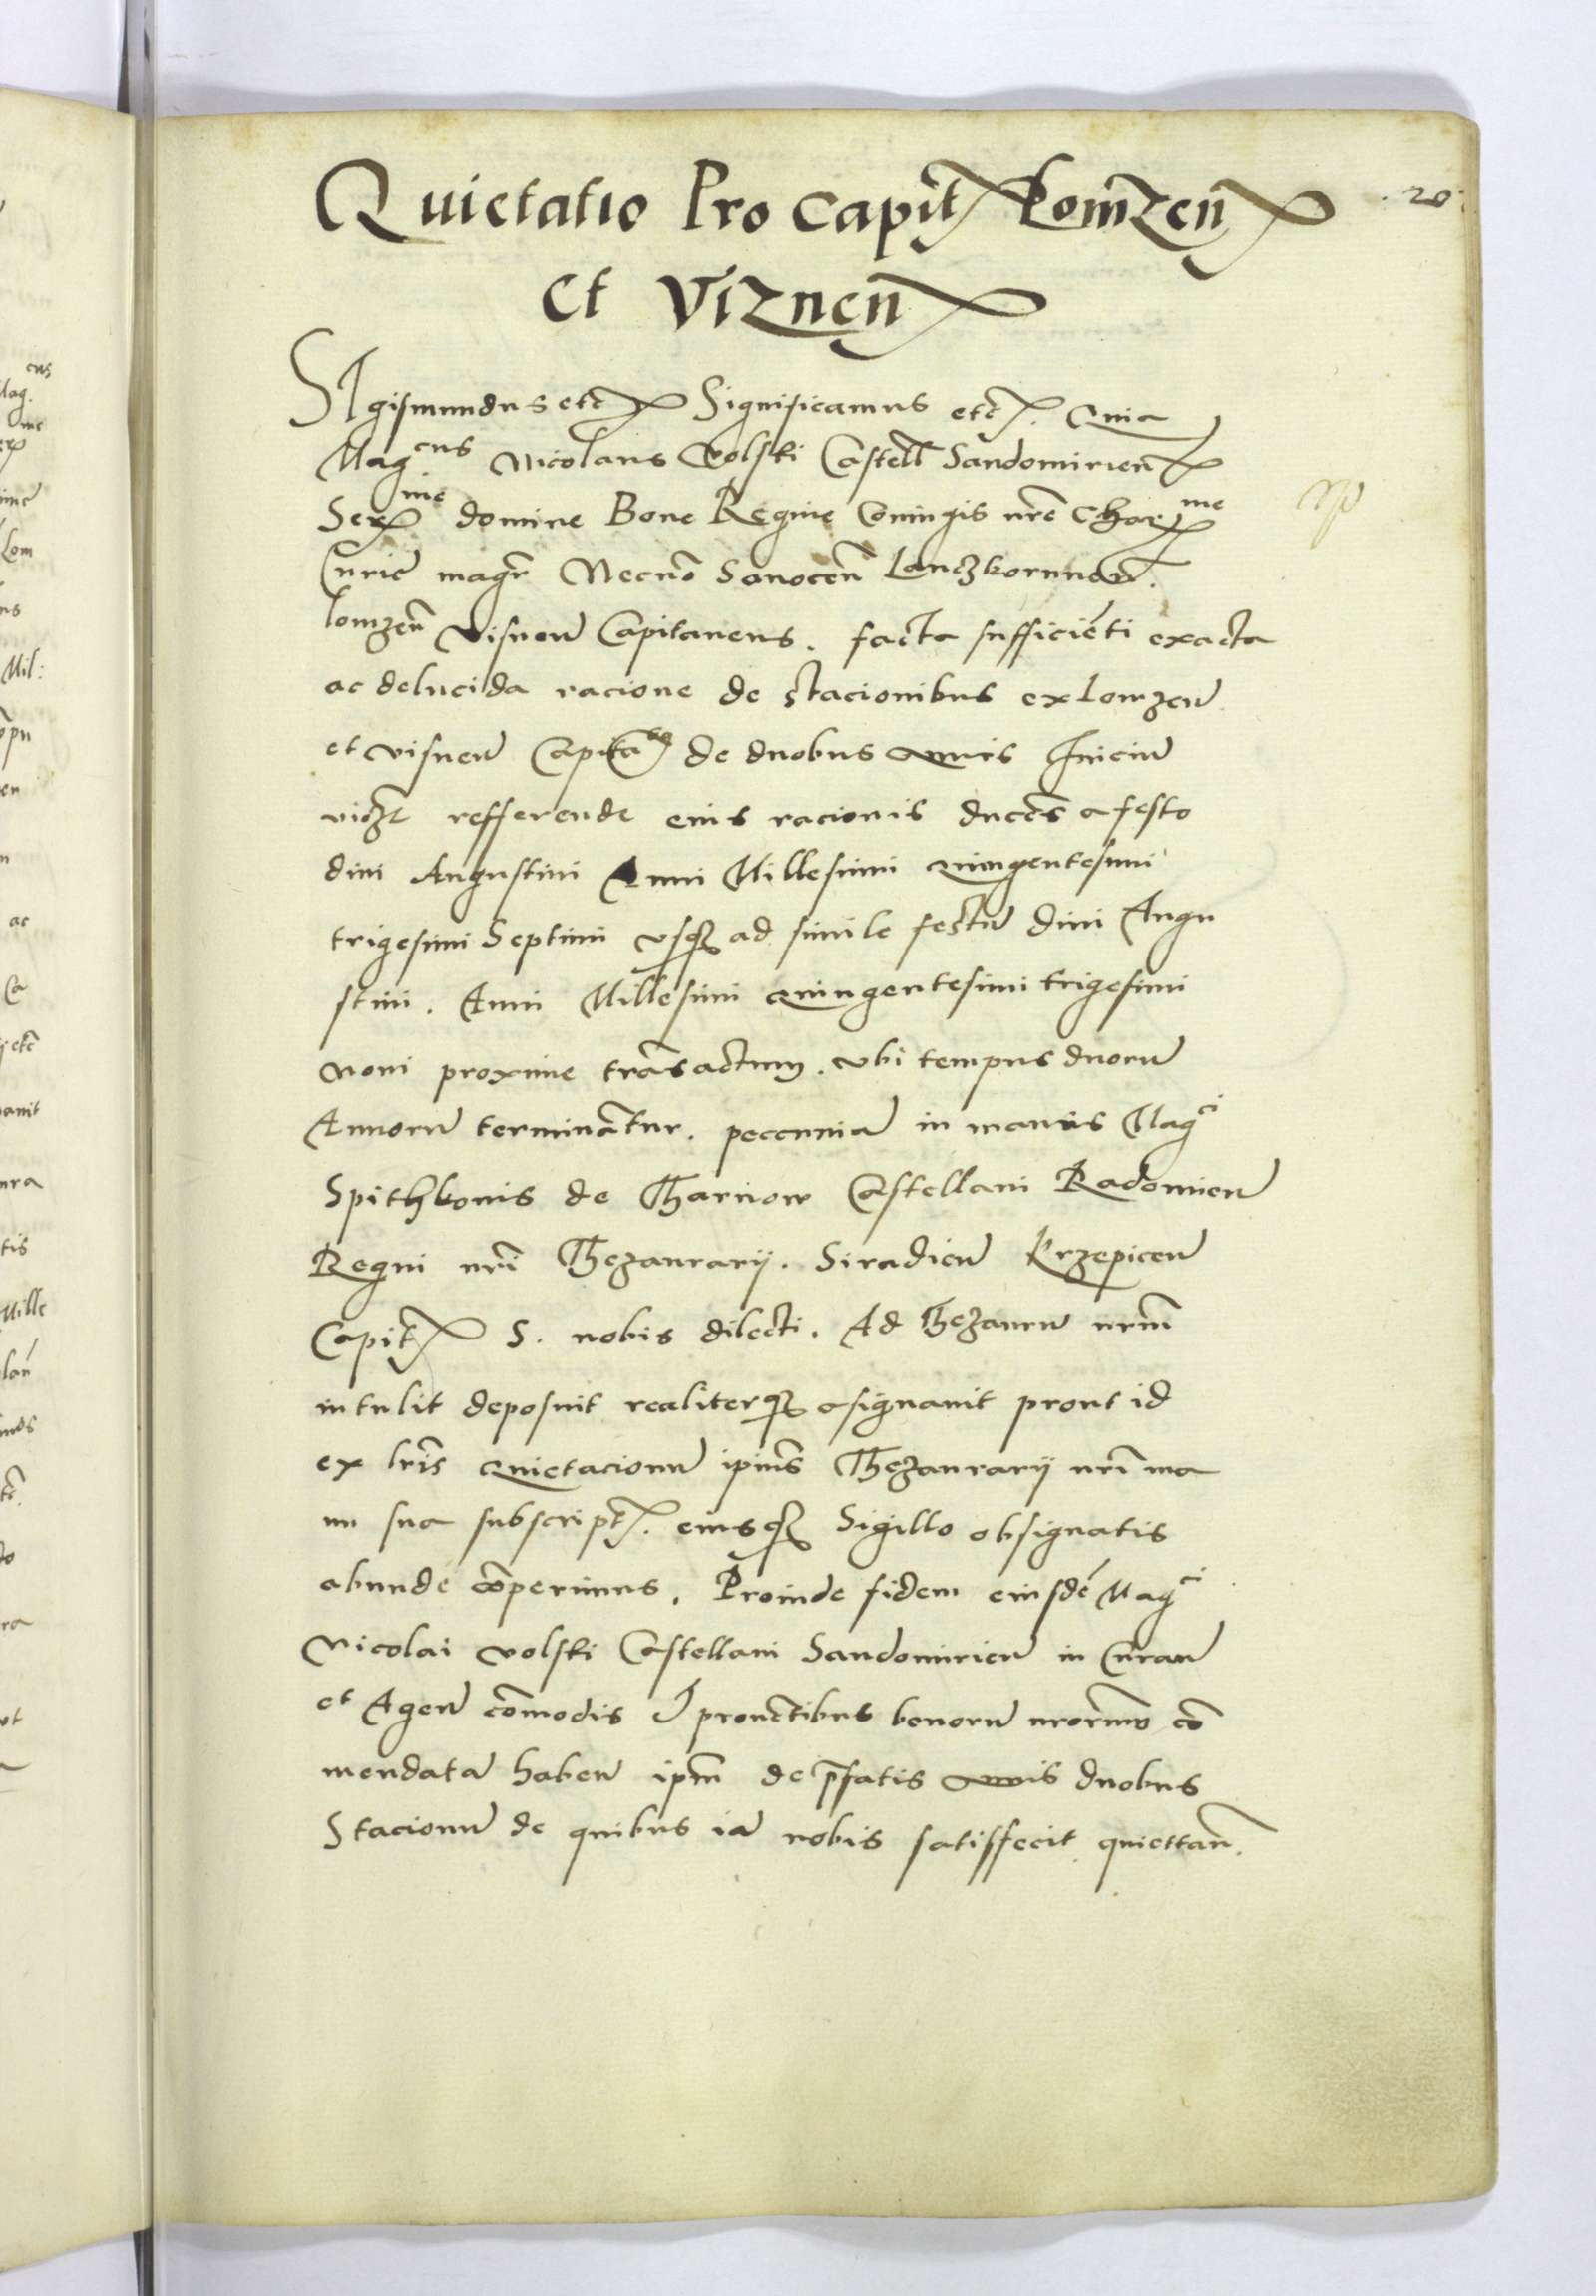 Quietatio Pro Capit Lomzen̄ 20
Et Viznen̄
SIgismundus etc̄ Significamus etc̄. Quia
Mag.cus Nicolaus Wolski Castell̄ Sandomirien̄
Ser.me domine Bone Regine Coniugis nr̄e Char.me
Curie magr̄ Necnō Sanocen̄ Lanczkorunen̄.
lomzen̄ visnen̄ Capitaneus. facta sufficiēti exacta
ac delucida racione de stacionibus ex Lomzen̄
et visnen̄ Capita de duobus annis Iniciū
vidzt refferende eius racionis ducēs a festo
diui Augustini Anni Millesimi quingentesimi
trigesimi Septimi vsq ad simile festū diui Augu
stini. Anni Millesimi quingentesimi trigesimi
noni proxime trāsactum. vbi tempus duorū
Annorū terminātur. pecuniā in manus Mag.ci
Spithkonis de Tharnow Castellani Radomien̄
Regni nr̄i Thezaurarij. Siradien̄ Krzepicen̄
Capit S. nobis dilecti. Ad Thezaurū nrm̄
intulit deposuit realiterq asignauit prout id
ex lr̄is quietacionū ipiūs Thezaurarij nr̄i ma
nu sua subscript. eiusq Sigillo obsignatis
abunde cōperimus. Proinde fidem eiusdē Mag.ci
Nicolai volski Castellani Sandomirien̄ in Curan̄
et Agen̄ cōmodis & prouētibus bonorū nrorum̄ cō
mendatā haben̄ ipm̄ de p̄fatis annis duobus
Stacionū de quibus iā nobis satisfecit quiettan̄.